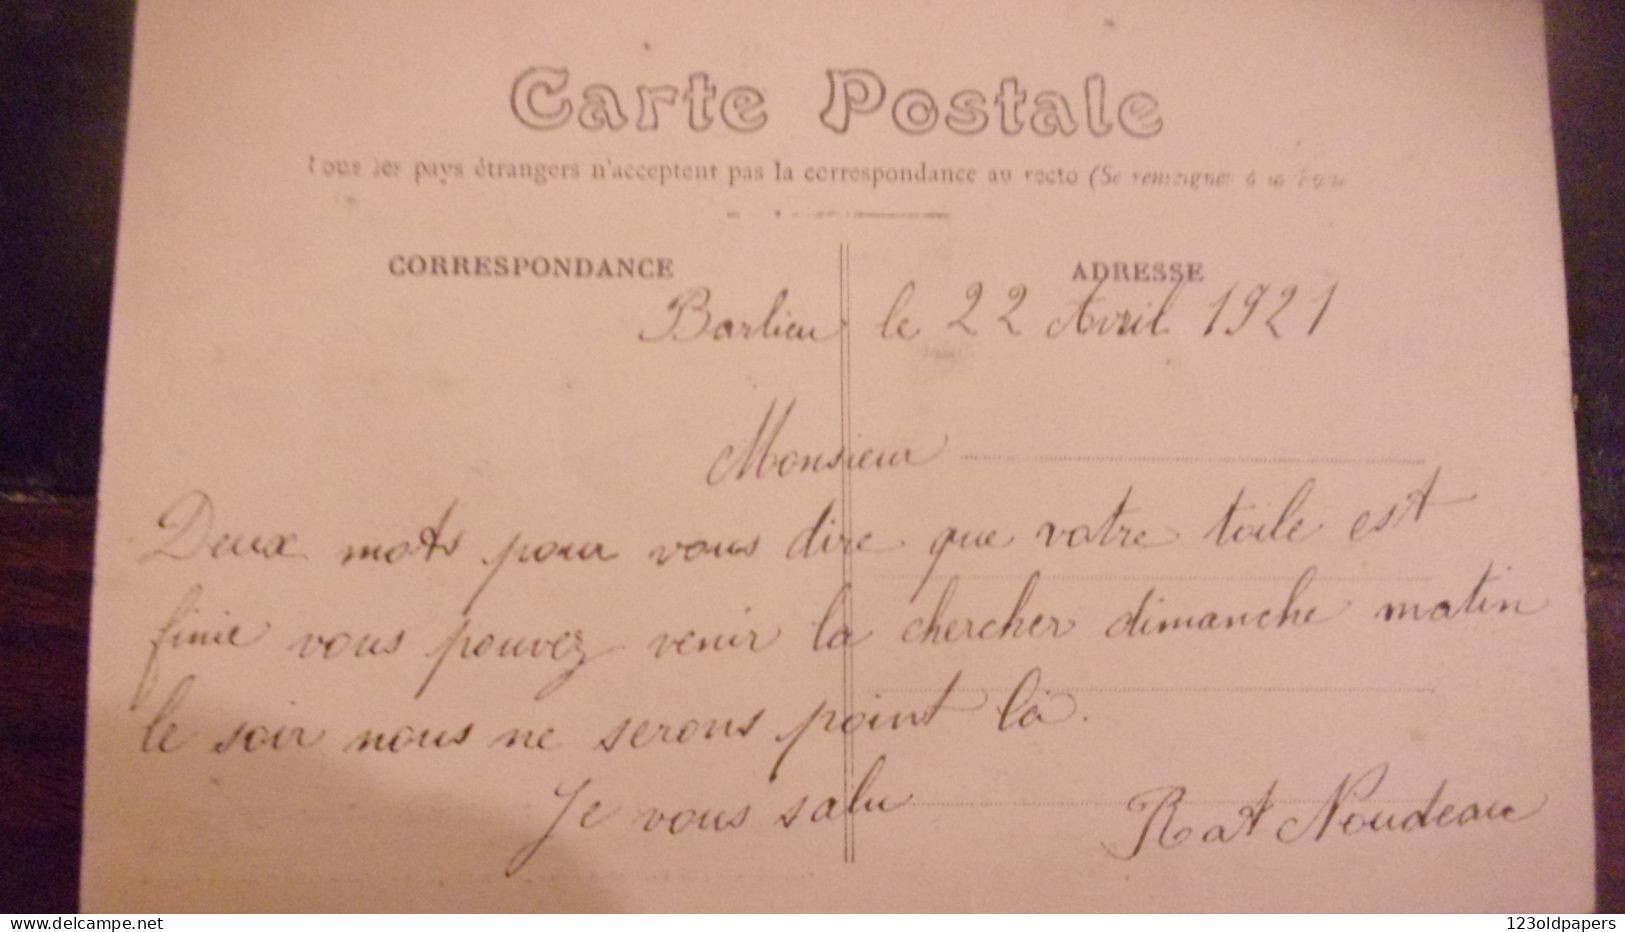 Carte Postale
Tous les pays étrangers n'acceptent pas la correspondance au recto (Se renseigner à la
CORRESPONDANCE
ADRESSE
Barlieu le 22 Avril 1921
Monsieur
Deux mots pour vous dire que votre toile est
finie vous pouvez venir la chercher dimanche matin
le soir nous ne serons point là.
Je vous salu
Rat Noudeau
www.delcampe.net
123oldpapers